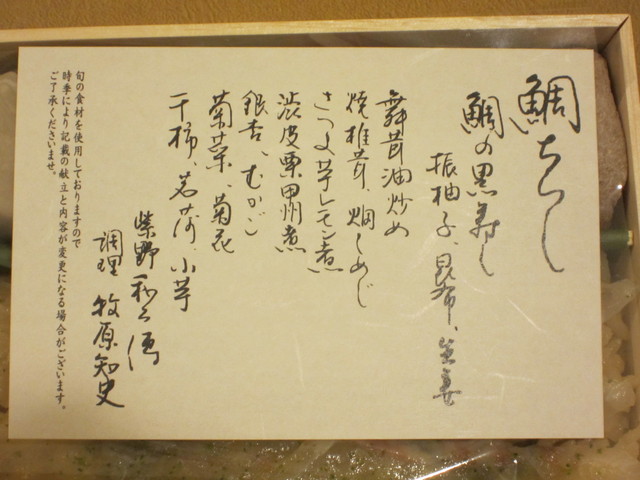 鯛ちらし
鯛の黒寿し
振柚子、昆布、生姜
舞茸油炒め
焼椎茸、焖しめじ
さつま芋レモン煮
渋皮栗甲州煮
銀杏、むかご
菊菜、菊花
干柿、茗荷、小芋
紫野和久傳
調理 牧原知史
旬の食材を使用しておりますので
時季により記載の献立と内容が変更になる場合がございます。
ご了承くださいませ。